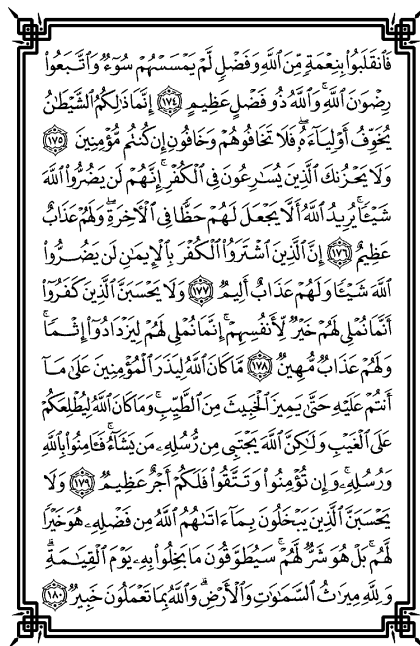 فَٱنقَلَبُوا۟ بِنِعْمَةٍ مِّنَ ٱللَّهِ وَفَضْلٍ لَّمْ يَمْسَسْهُمْ سُوٓءٌ وَٱتَّبَعُوا۟
رِضْوَٰنَ ٱللَّهِ ۗ وَٱللَّهُ ذُو فَضْلٍ عَظِيمٍ ١٧٤ إِنَّمَا ذَٰلِكُمُ ٱلشَّيْطَٰنُ
يُخَوِّفُ أَوْلِيَآءَهُۥ فَلَا تَخَافُوهُمْ وَخَافُونِ إِن كُنتُم مُّؤْمِنِينَ ١٧٥
وَلَا يَحْزُنكَ ٱلَّذِينَ يُسَٰرِعُونَ فِى ٱلْكُفْرِ ۚ إِنَّهُمْ لَن يَضُرُّوا۟ ٱللَّهَ
شَيْـًٔا ۗ يُرِيدُ ٱللَّهُ أَلَّا يَجْعَلَ لَهُمْ حَظًّا فِى ٱلْـَٔاخِرَةِ ۖ وَلَهُمْ عَذَابٌ
عَظِيمٌ ١٧٦ إِنَّ ٱلَّذِينَ ٱشْتَرَوُا۟ ٱلْكُفْرَ بِٱلْإِيمَٰنِ لَن يَضُرُّوا۟
ٱللَّهَ شَيْـًٔا وَلَهُمْ عَذَابٌ أَلِيمٌ ١٧٧ وَلَا يَحْسَبَنَّ ٱلَّذِينَ كَفَرُوٓا۟
أَنَّمَا نُمْلِى لَهُمْ خَيْرٌ لِّأَنفُسِهِمْ ۚ إِنَّمَا نُمْلِى لَهُمْ لِيَزْدَادُوٓا۟ إِثْمًا ۚ
وَلَهُمْ عَذَابٌ مُّهِينٌ ١٧٨ مَّا كَانَ ٱللَّهُ لِيَذَرَ ٱلْمُؤْمِنِينَ عَلَىٰ مَآ
أَنتُمْ عَلَيْهِ حَتَّىٰ يَمِيزَ ٱلْخَبِيثَ مِنَ ٱلطَّيِّبِ ۗ وَمَا كَانَ ٱللَّهُ لِيُطْلِعَكُمْ
عَلَى ٱلْغَيْبِ وَلَٰكِنَّ ٱللَّهَ يَجْتَبِى مِن رُّسُلِهِۦ مَن يَشَآءُ ۖ فَـَٔامِنُوا۟ بِٱللَّهِ
وَرُسُلِهِۦ ۚ وَإِن تُؤْمِنُوا۟ وَتَتَّقُوا۟ فَلَكُمْ أَجْرٌ عَظِيمٌ ١٧٩ وَلَا
يَحْسَبَنَّ ٱلَّذِينَ يَبْخَلُونَ بِمَآ ءَاتَىٰهُمُ ٱللَّهُ مِن فَضْلِهِۦ هُوَ خَيْرًا
لَّهُم ۖ بَلْ هُوَ شَرٌّ لَّهُمْ ۖ سَيُطَوَّقُونَ مَا بَخِلُوا۟ بِهِۦ يَوْمَ ٱلْقِيَٰمَةِ ۗ
وَلِلَّهِ مِيرَٰثُ ٱلسَّمَٰوَٰتِ وَٱلْأَرْضِ ۗ وَٱللَّهُ بِمَا تَعْمَلُونَ خَبِيرٌ ١٨٠